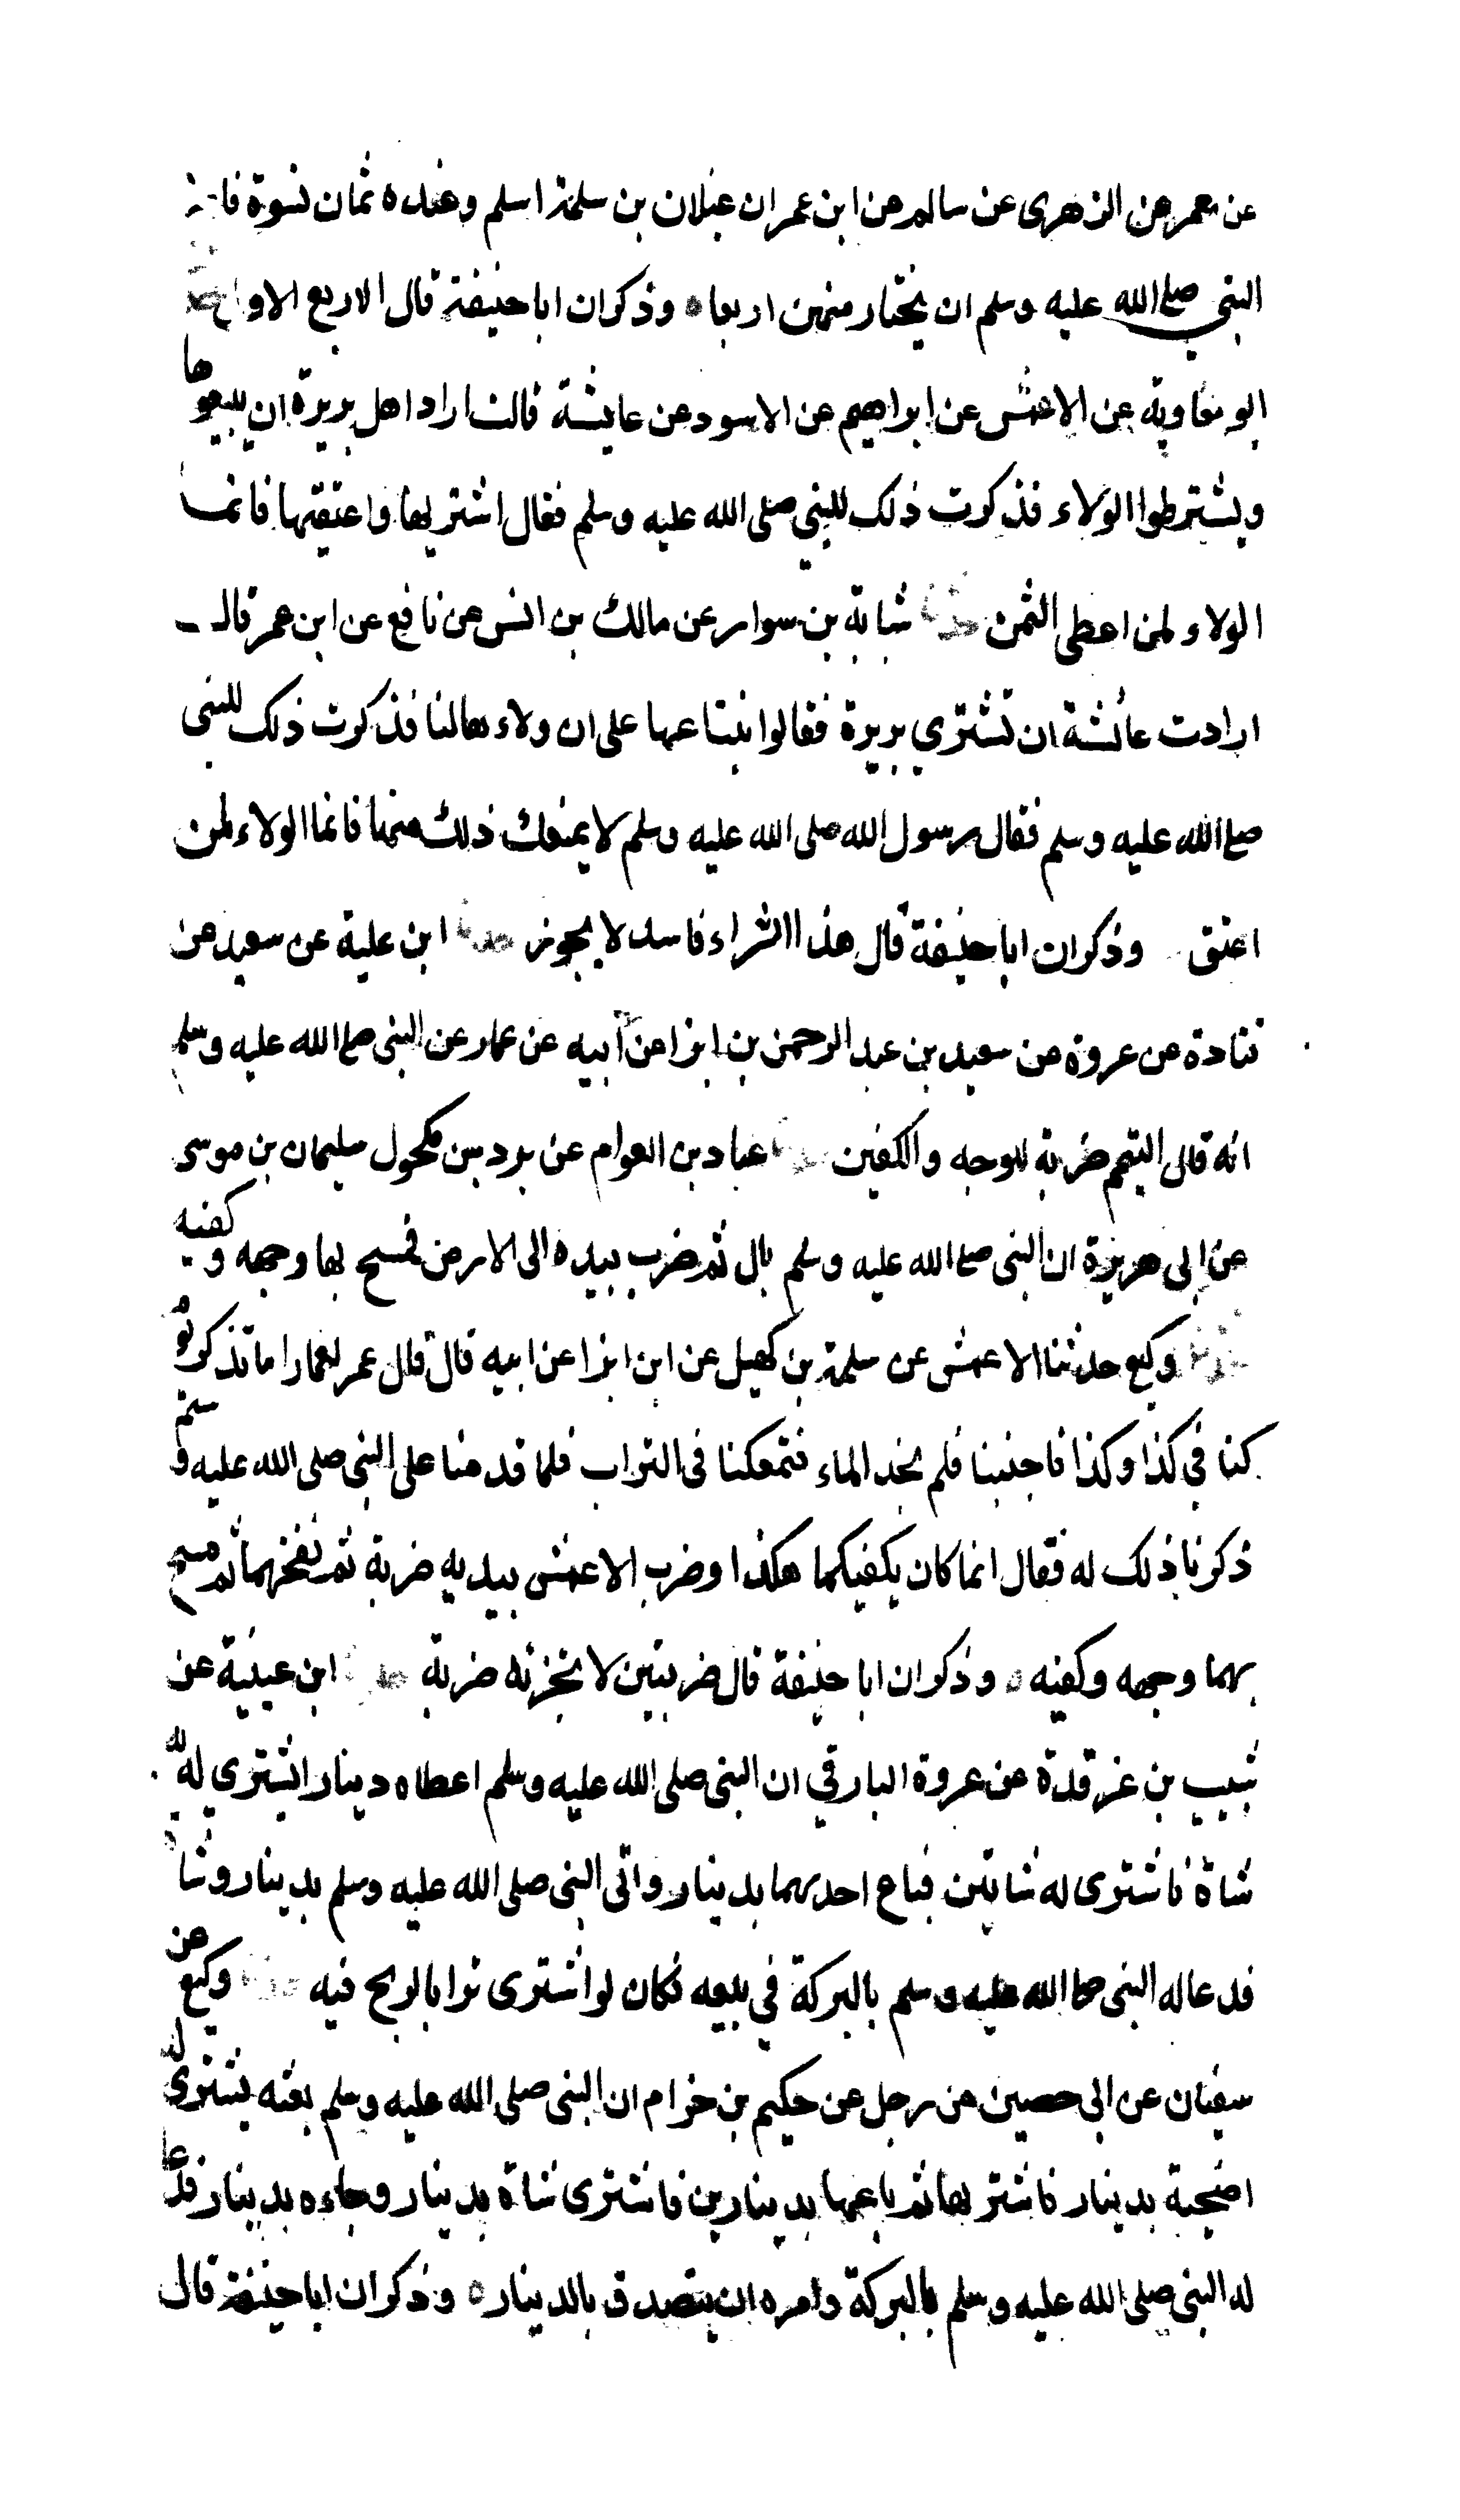 عن معمر عن الزهرى عن سالم عن ابن عمر ان غيلان بن سلمة اسلم وعنده ثمان نسوة
النبي صلى الله عليه وسلم ان يختار منهن اربعا ٥ وذكر ان ابا حنيفة قال الاربع الاول
ابو معاوية عن الاعمش عن ابراهيم عن الاسود عن عايشة قالت اراد اهل بريرة ان يبيعوها
ويشترطوا الولاء فذكرت ذلك للنبي صلى الله عليه وسلم فقال اشتريها واعتقيها فانما
الولاء لمن اعطى الثمن حدثنا شبابة بن سوار عن مالك بن انس عن نافع عن ابن عمر قال
ارادت عائشة ان تشتري بريرة فقالوا نبتاعها على ان ولاءها لنا فذكرت ذلك للنبي
صلى الله عليه وسلم فقال رسول الله صلى الله عليه وسلم لا يمنعك ذلك منها فانما الولاء لمن
اعتق وذكر ان ابا حنيفة قال هذا الشراء فاسد لا يجوز حدثنا ابن علية عن سعيد عن
قتادة عن عروة عن سعيد بن عبد الرحمن بن ابزا عن ابيه عن عمار عن النبي صلى الله عليه وسلم
انه قال التيمم ضربة للوجه والكفين حدثنا عباد بن العوام عن برد بن مكحول سليمان بن موسى
عن ابى هريرة ان النبى صلى الله عليه وسلم بال ثم ضرب بيده الى الارض فمسح بها وجهه وكفيه
حدثنا وكيع حدثنا الاعمش عن سلمة بن كهيل عن ابن ابزا عن ابيه قال قال عمر لعمار اما تذكر يوم
كنا في كذا وكذا فاجنبنا فلم نجد الماء فتمعكنا فى التراب فلما قدمنا على النبى صلى الله عليه وسلم
ذكرنا ذلك له فقال انما كان يكفيكما هكذا وضرب الاعمش بيديه ضربة ثم نفخهما ثم مسح
بهما وجهه وكفيه ٥ وذكر ان ابا حنيفة قال ضربتين لا تجزئه ضربة حدثنا ابن عيينة عن
شبيب بن غرقدة عن عروة البارقي ان النبى صلى الله عليه وسلم اعطاه دينارا يشترى له به
شاة فاشترى له شاتين فباع احديهما بدينار واتى النبى صلى الله عليه وسلم بدينار وشاة
فدعا له النبى صلى الله عليه وسلم بالبركة في بيعه فكان لو اشترى ترابا لربح فيه حدثنا وكيع عن
سفيان عن ابى حصين عن رجل عن حكيم بن حزام ان النبى صلى الله عليه وسلم بعثه يشترى له
اضحية بدينار فاشتريها ثم باعها بدينارين فاشترى شاة بدينار وجاءه بدينار فدعا
له النبى صلى الله عليه وسلم بالبركة وامره ان يتصدق بالدينار ٥ وذكر ان ابا حنيفة قال